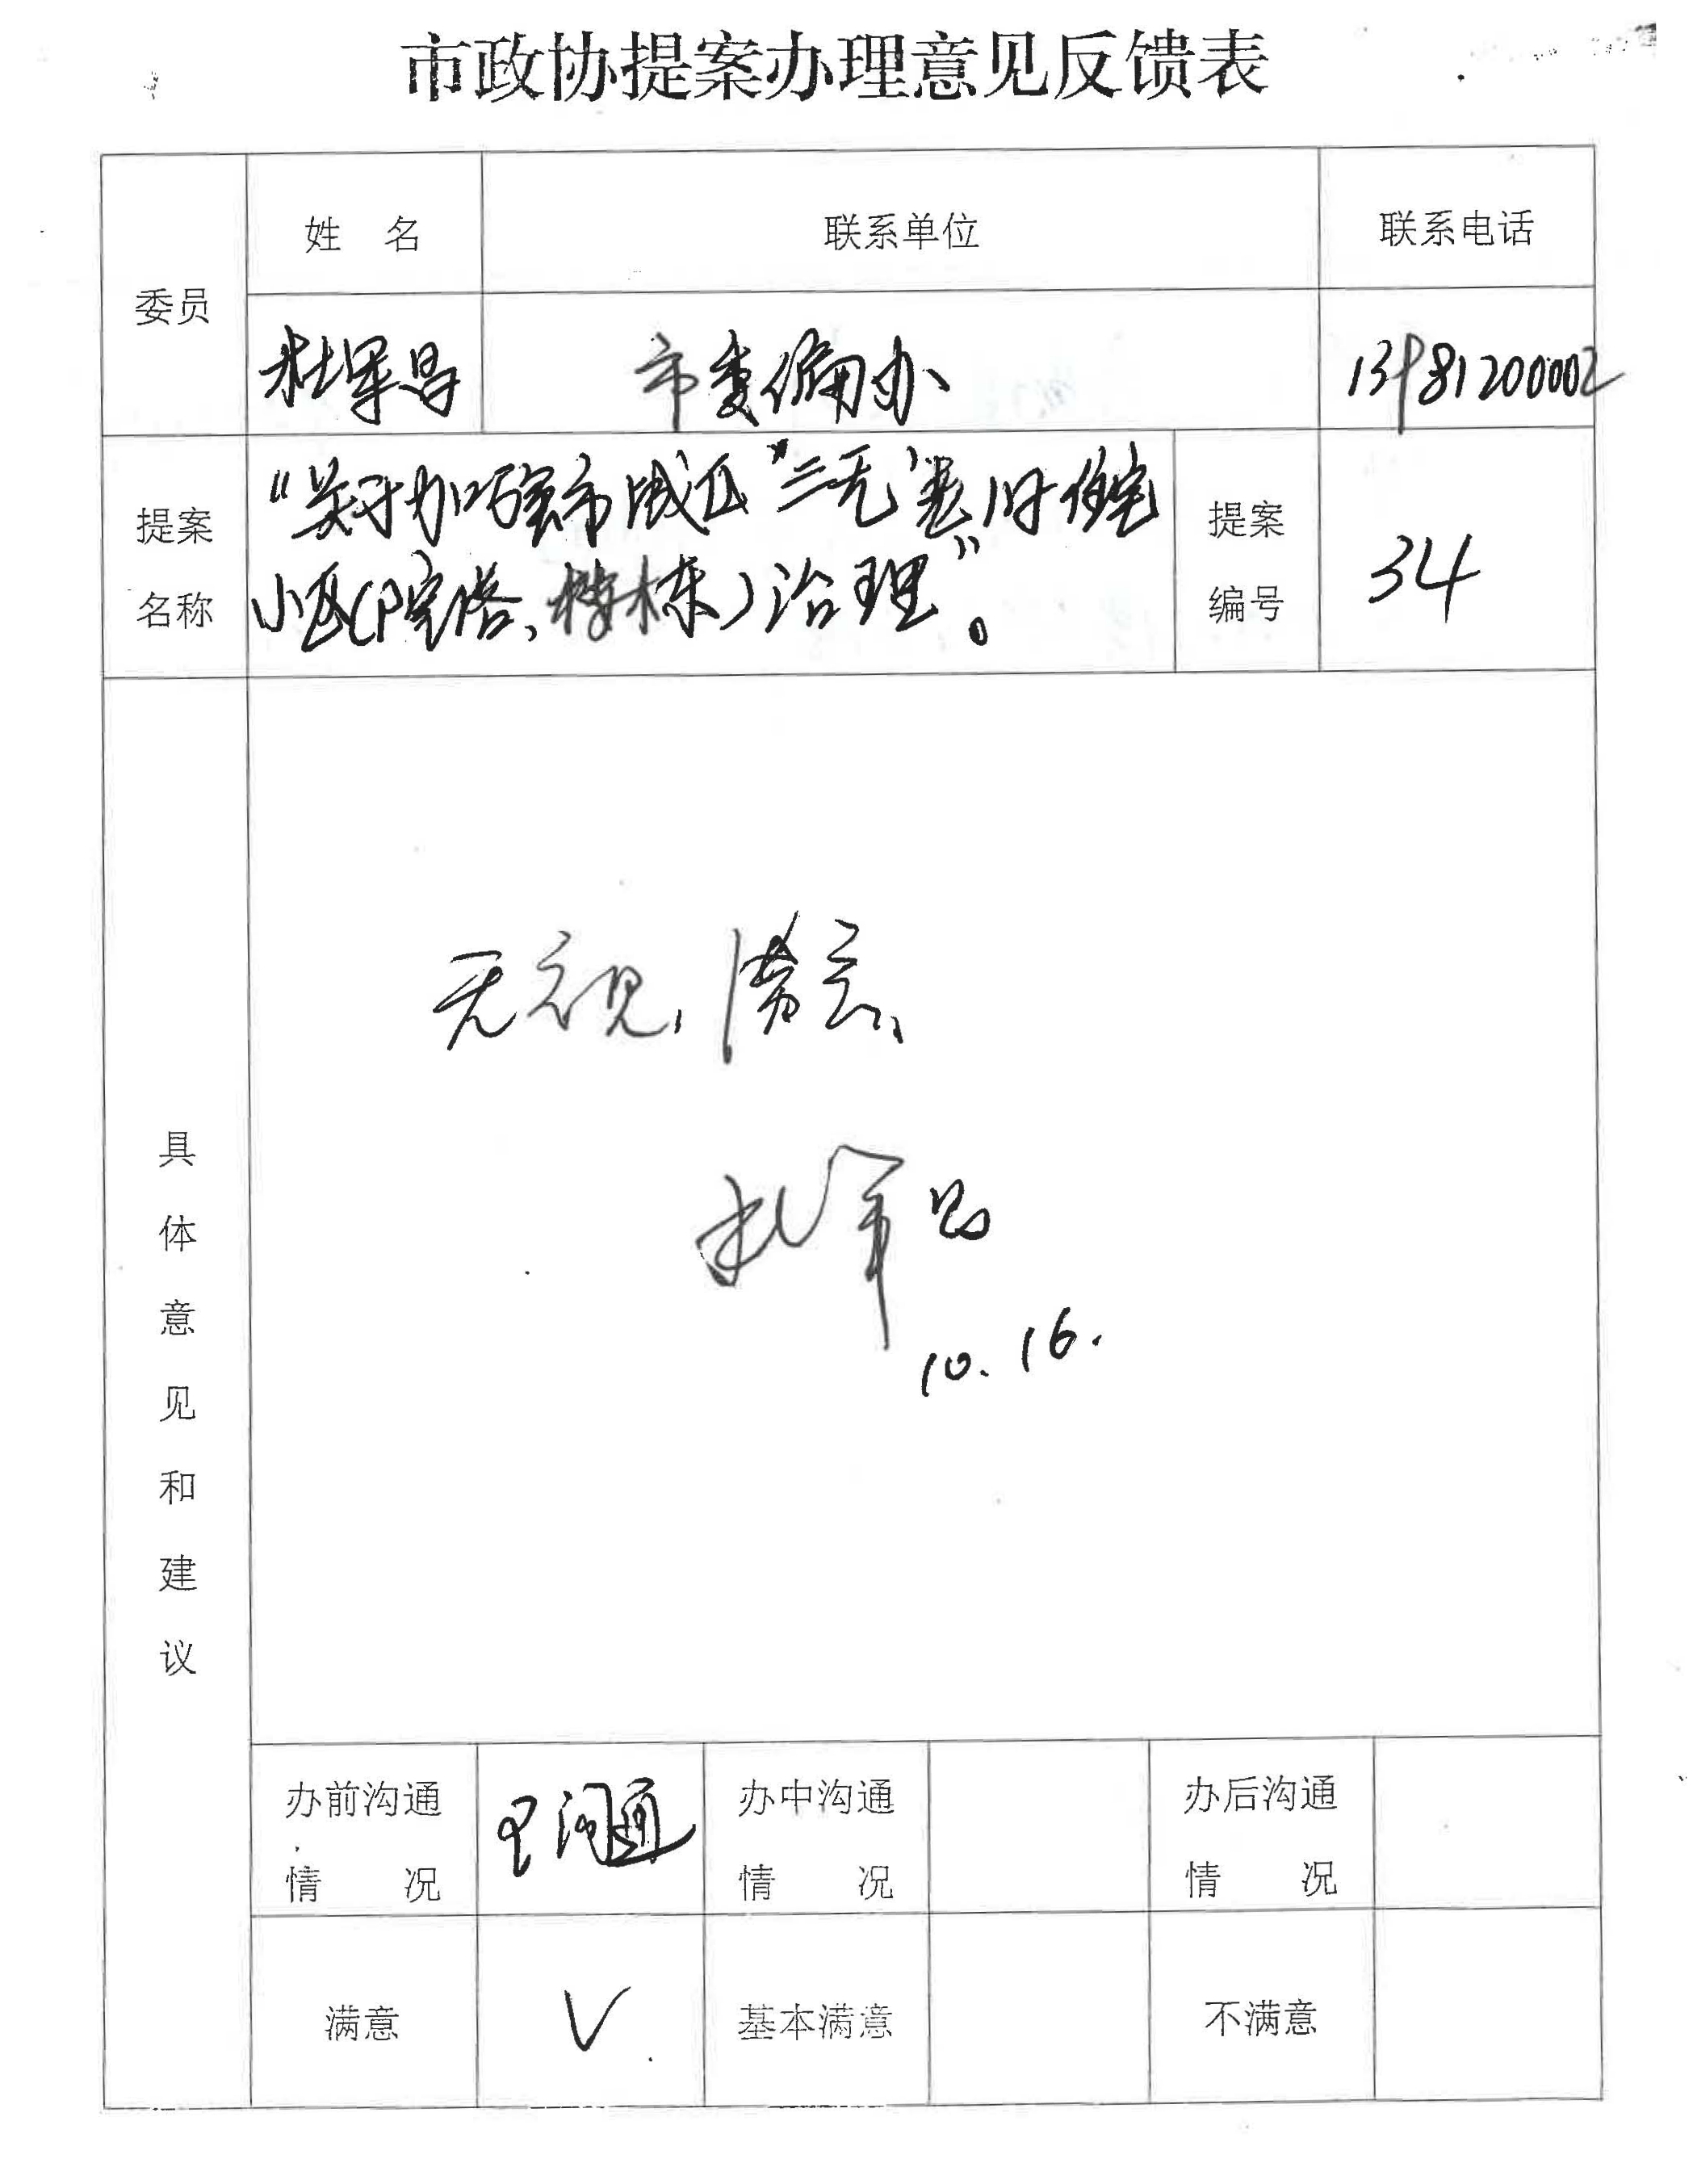 市政协提案办理意见反馈表
委员
姓 名
联系单位
联系电话
杜军昌
市委编办
13981200002
提案
名称
“关于加强市城区“三无”老旧住宅
小区(院落、楼栋)治理”。
提案
编号
34
具体意见和建议
无意见,满意、
杜军昌
10.16.
办前沟通
情 况
已沟通
办中沟通
情 况
办后沟通
情 况
满意
√
基本满意
不满意